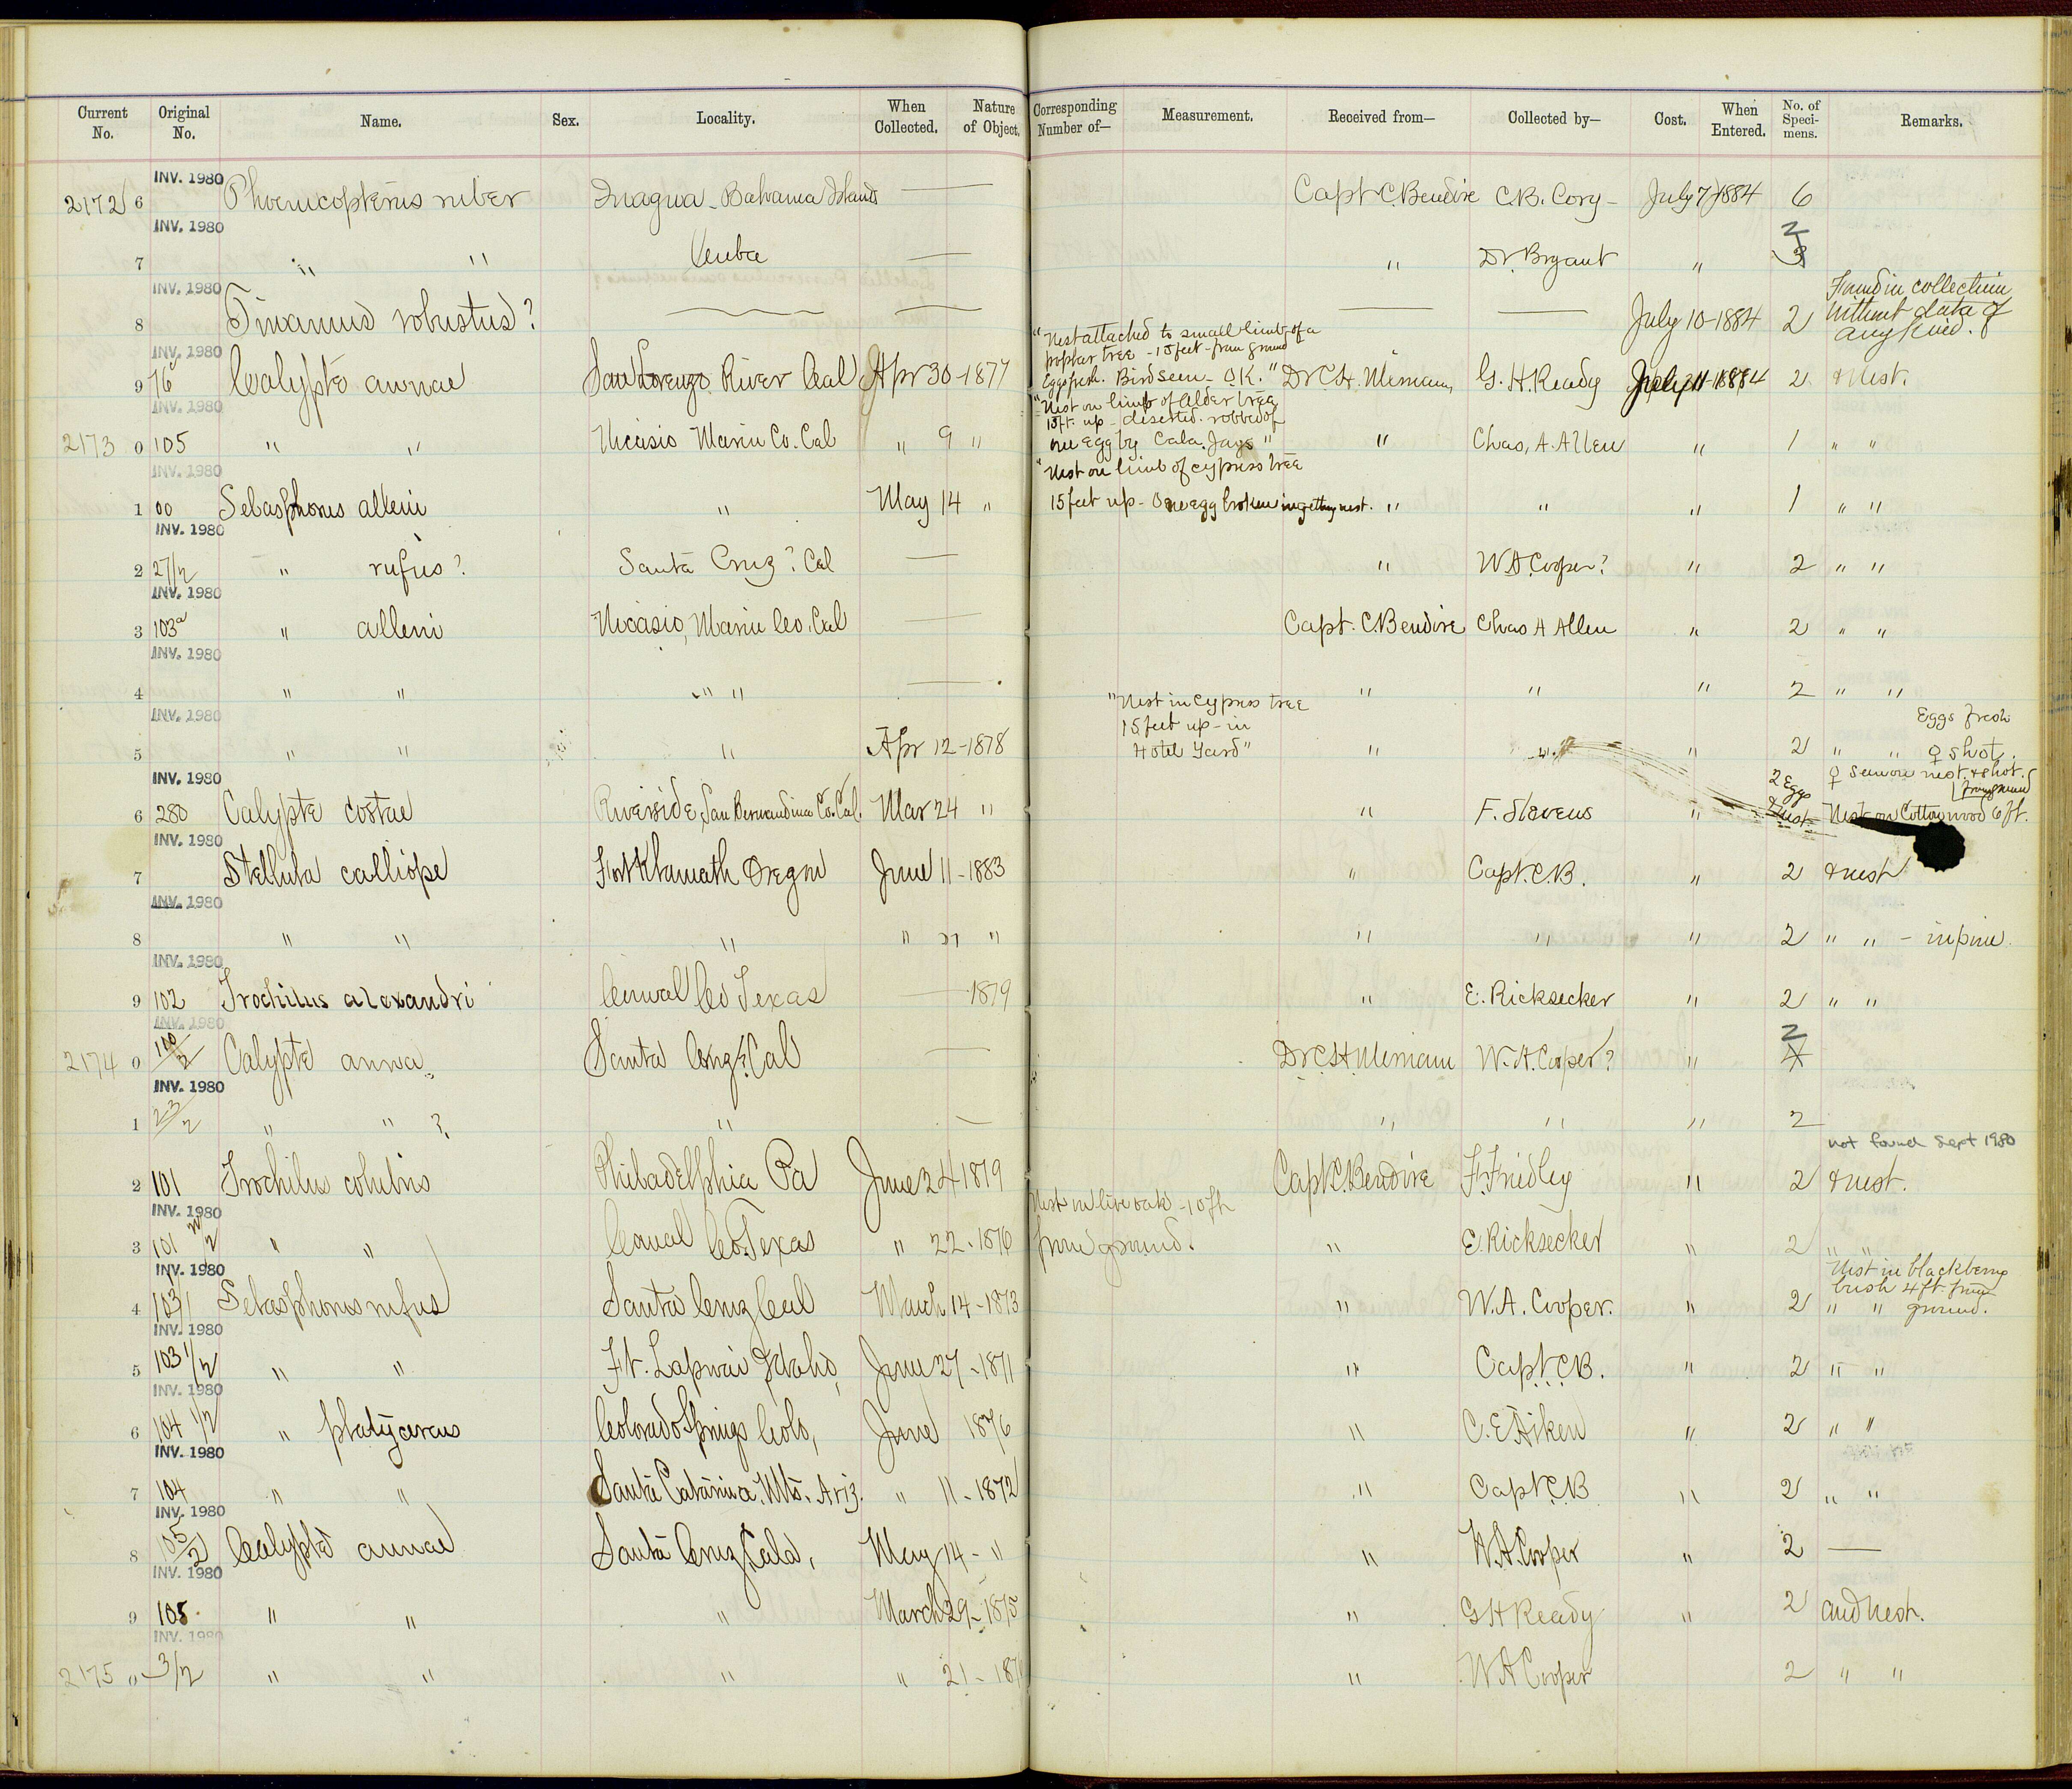 Current No. Original No. Name. Sex. Locality. When Collected. Nature of Object. Corresponding Number of— Measurement. Received from— Collected by— Cost. When Entered. No. of Specimens. Remarks.
INV. 1980
2172 6 Phoenicopterus ruber Inagua - Bahama Islands — Capt C. Bendire C.B. Cory - July 7, 1884 6
INV. 1980
7 " " Cuba — " Dr. Bryant " 3 2
INV. 1980
8 Tinamus robustus? — — — — July 10-1884 2 Found in collection without data of any kind.
INV. 1980
9 76 Calypte annae San Lorenzo River Cal Apr 30-1877 "Nest attached to small limb of a poplar tree - 15 feet - from ground Eggs fresh. Bird seen - O.K." Dr C.H. Merriam, G. H. Ready July 11-1884 2 & Nest.
INV. 1980
2173 0 105 " " Nicasio Marin Co. Cal " 9 " "Nest on limb of Alder tree 15 ft. up - deserted. robbed of one Egg by Cala. Jays" " Chas. A. Allen " 1 " "
INV. 1980
1 00 Selasphorus alleni " May 14 " "Nest on limb of cypress tree 15 feet up - One egg broken in getting nest. " " " 1 " "
INV. 1980
2 27/2 " rufus? Santa Cruz? Cal — " W.A. Cooper? " 2 " "
INV. 1980
3 103a " alleni Nicasio, Marin Co. Cal — Capt. C. Bendire Chas A Allen " 2 " "
INV. 1980
4 " " " " — " " " 2 " "
INV. 1980
5 " " " Apr 12-1878 "Nest in Cypress tree 15 feet up - in Hotel Yard" " " " 2 " " Eggs fresh ♀ shot.
INV. 1980
6 280 Calypte costae Riverside, San Bernardino Co. Cal. Mar 24 " " F. Stevens " 2 Eggs & nest ♀ seen on nest & shot. Nest on Cottonwood 6 ft. from ground
INV. 1980
7 Stellula calliope Fort Klamath Oregon June 11-1883 " Capt. C.B. " 2 & nest
INV. 1980
8 " " " " 27 " " " " 2 " " - in pine.
INV. 1980
9 102 Trochilus alexandri Comal Co Texas — 1879 " E. Ricksecker " 2 " "
INV. 1980
2174 0 100/2 Calypte anna Santa Cruz? Cal — Dr C.H. Merriam W. A. Cooper? " 4 2
INV. 1980
1 23/2 " " ? " — " " " 2
not found Sept 1980
2 101 Trochilus colubris Philadelphia Pa June 24 1879 Capt C. Bendire F. Fridley " 2 & nest.
INV. 1980
3 101 1/2 " " Comal Co. Texas " 22-1876 Nest in live oak - 10 ft from ground. " E. Ricksecker " 2 " "
INV. 1980
4 103/1 Selasphorus rufus Santa Cruz Cal March 14-1873 " W.A. Cooper. " 2 " " Nest in blackberry bush 4 ft. from ground.
INV. 1980
5 103 1/2 " " Ft. Lapwai Idaho, June 27-1871 " Capt. C.B. " 2 " "
INV. 1980
6 104 1/2 " platycercus Colorado Springs Colo, June 1876 " C. E Aiken " 2 " "
INV. 1980
7 104 " " Santa Catarina. Mts. Ariz. " 11-1872 " Capt. C.B " 2 " "
INV. 1980
8 105/2 Calypte annae Santa Cruz, Cala, May 14- " " W.A. Cooper " 2 —
INV. 1980
9 105. " " " March 29-1875 " G H Ready " 2 and nest.
INV. 1980
2175 0 3/2 " " " " 21- " W A Cooper 2 " "